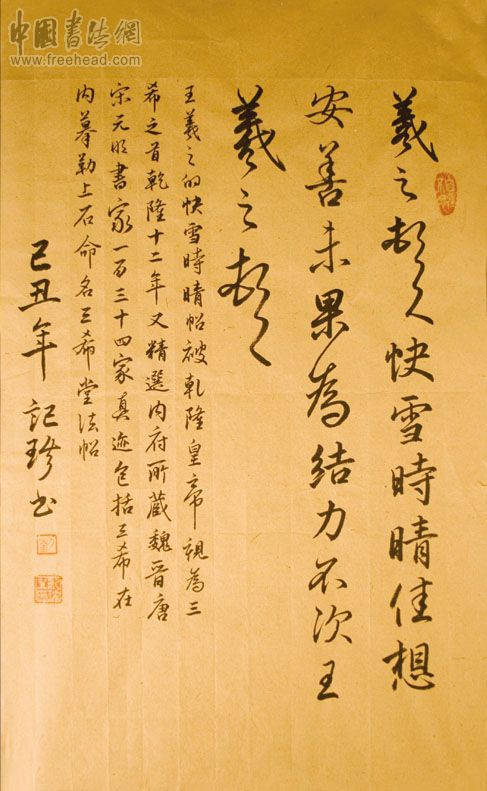 中國書法網
http://www.freehead.com
羲之頓首快雪時晴佳想
安善未果為結力不次王
羲之頓首
王羲之的快雪時晴帖被乾隆皇帝視為三
希之首乾隆十二年又精選内府所藏魏晉唐
宋元明書家一百三十四家真迹包括三希在
内摹勒上石命名三希堂法帖
己丑年記珍书